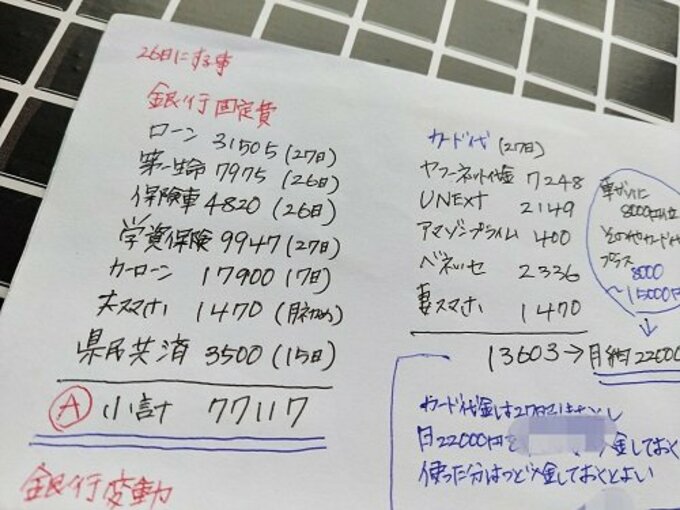 26日にする事
銀行固定費
ローン 31505 (27日)
第一生命 7975 (26日)
保険車 4820 (26日)
学資保険 9947 (27日)
カーローン 17900 (7日)
夫スマホ 1470 (月初め)
県民共済 3500 (15日)
A 小計 77117
銀行変動
カード代 (27日)
ヤフーネット代金 7248
UNEXT 2149
アマゾンプライム 400
ベネッセ 2336
妻スマホ 1470
13603→月約22000
車ガソリン
8000円位
その他カード代
プラス 8000
～15000円
カード代金は27日に
月22000円を 金しておく
使った分はつど入金しておくとよい